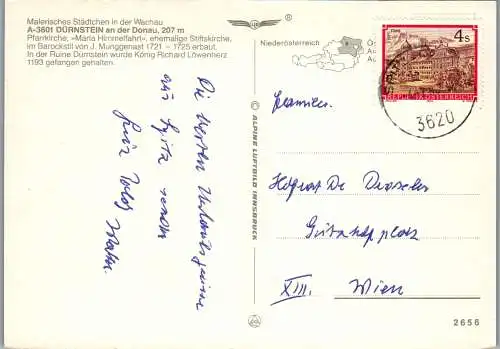 Malerisches Städtchen in der Wachau
A-3601 DÜRNSTEIN an der Donau, 207 m
Pfarrkirche, »Maria Himmelfahrt«, ehemalige Stiftskirche,
im Barockstil von J. Munggenast 1721 – 1725 erbaut.
In der Ruine Dürnstein wurde König Richard Löwenherz
1193 gefangen gehalten.
Die besten Urlaubsgrüsse
aus Spitz senden
Niederösterreich
© ALPINE LUFTBILD INNSBRUCK
4s
REPUBLIK ÖSTERREICH
3620
Familie
Hofrat Dr.
XIII. Wien
2656